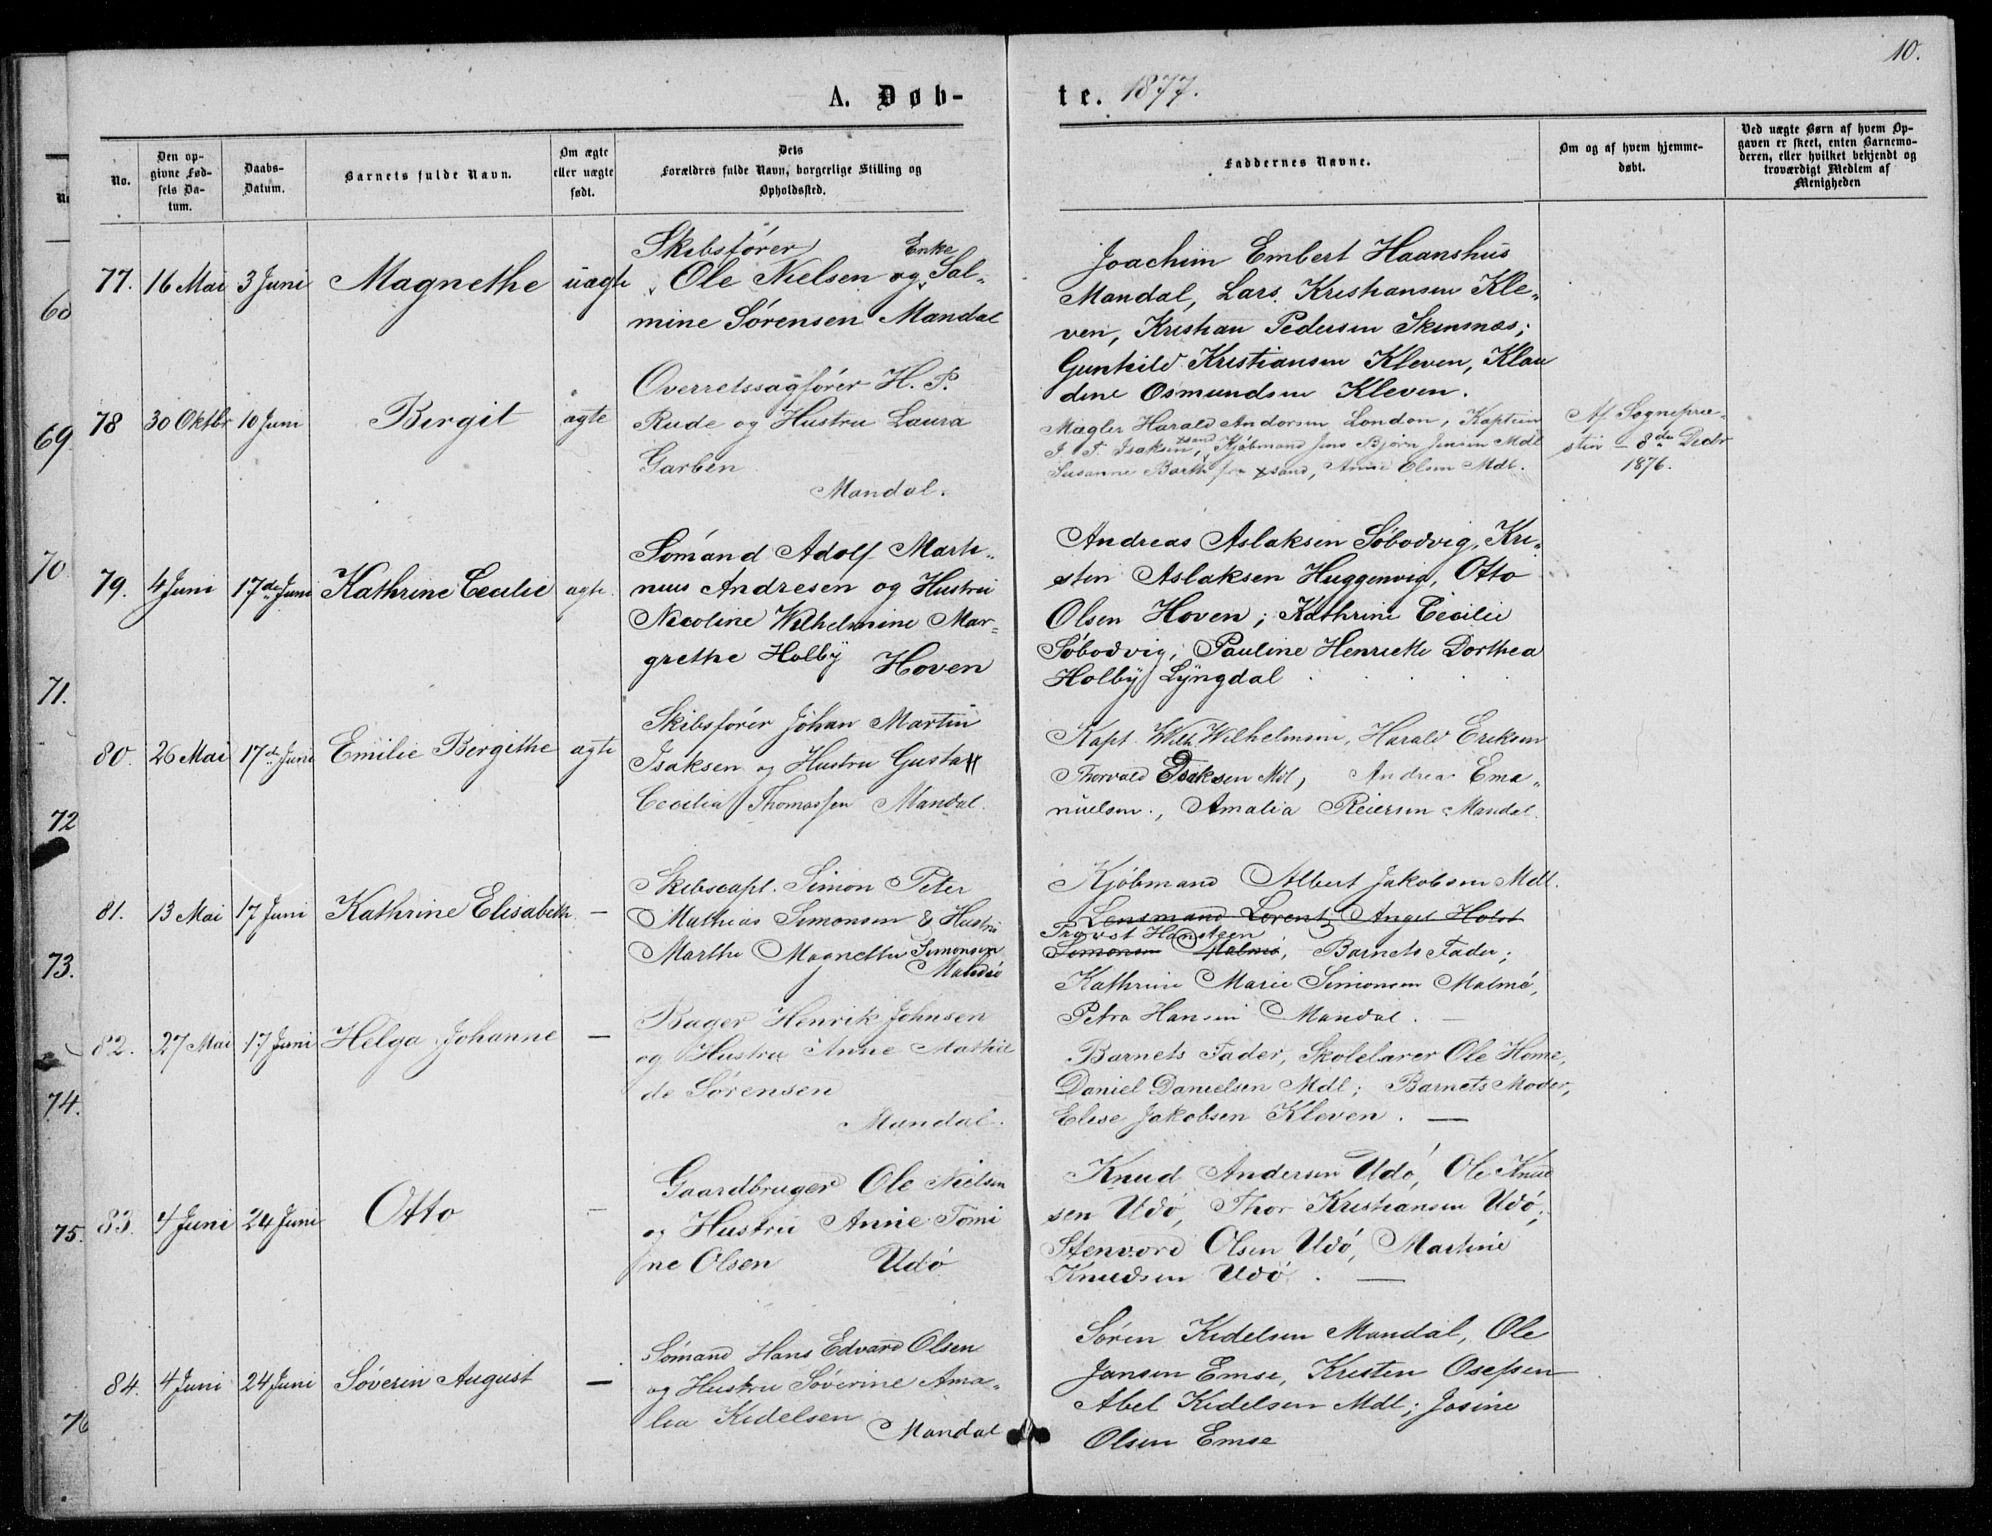 10.
A. Døb-
te. 1877.
No.
Den op-
givne Fød-
sels Da-
tum.
Daabs-
Datum.
Barnets fulde Navn.
Om ægte
eller uægte
født.
Dets
Forældres fulde Navn, borgerlige Stilling og
Opholdssted.
Faddernes Navne.
Om og af hvem hjemme-
døbt.
Ved uægte Børn af hvem Op-
gaven er skeet, enten Barnemo-
deren, eller hvilket bekjendt og
troværdigt Medlem af
Menigheden
77. 16 Mai 3 Juni Magnethe uægte
Skibsfører Enke
Ole Nielsen og Sal-
mine Sørensen Mandal
Joachim Embert Haanshus
Mandal, Lars Kristiansen Kle-
ven, Kristian Pedersen Skinsnæs;
Gunhild Kristiansen Kleven, Klau
dine Osmundsen Kleven.
78 30 Oktbr 10 Juni Bergit ægte
Overretssagfører H. P.
Rude og Hustru Laura
Garben
Mandal.
Mægler Harald Andorsen London, Kaptein
I. T. Isaksen, Kjøbmand Jens Bjørn Jensen Mdl
Susanne Barth fra Xsand, Anne Olsen Mdl.
Af Sognepræ-
sten – 8de Decbr
1876.
79. 4 Juni 17de Juni Kathrine Cecilie ægte.
Sømand Adolf Marti-
nius Andresen og Hustru
Nicoline Wilhelmine Mar-
grethe Holby Hoven
Andreas Aslaksen Søbodvig, Kri-
sten Aslaksen Huggenvig, Otto
Olsen Hoven; Kathrine Cecilie
Søbodvig, Pauline Henriette Dorthea
Holby Lyngdal
80. 26 Mai 17de Juni Emilie Bergithe ægte
Skibsfører Johan Martin
Isaksen og Hustru Gusta
Cecilia Thomassen Mandal.
Kapt. Wilh Wilhelmsen, Harald Eriksen
Thorvald Isaksen Mdl, Andrea Ema-
nuelsen., Amalia Reiersen Mandal.
81. 13 Mai 17 Juni Kathrine Elisabeth –
Skibscapt. Simon Peter
Mathias Simonsen & Hustru
Marthe Magnethe Simonsen
Malmø
Kjøbmand Albert Jakobsen Mdl.
Lensmand Lorentz Angel Holst
Provst Hansteen
Simonsen Malmø, Barnets Fader;
Kathrine Marie Simonsen Malmø,
Petra Hansen Mandal. –
82. 27 Mai 17 Juni Helga Johanne –
Bager Henrik Johnsen
og Hustru Anne Mathil
de Sørensen
Mandal.
Barnets Fader, Skolelærer Ole Home,
Daniel Danielsen Mdl; Barnets Moder,
Elise Jakobsen Kleven. –
83. 4 Juni 24 Juni Otto –
Gaardbruger Ole Nielsen
og Hustru Anne Tomi
ne Olsen Udø
Knud Andersen Udø, Ole Knud
sen Udø, Thor Kristiansen Udø;
Stenvord Olsen Udø, Martine
Knudsen Udø. –
84. 4 Juni 24 Juni Søverin August –
Sømand Hans Edvard Olsen
og Hustru Søverine Ama-
lia Kidelsen Mandal
Søren Kidelsen Mandal, Ole
Jansen Emse, Kristen Osefsen
Abel Kidelsen Mdl; Josine
Olsen Emse
69
70
71.
72
73.
74.
75.